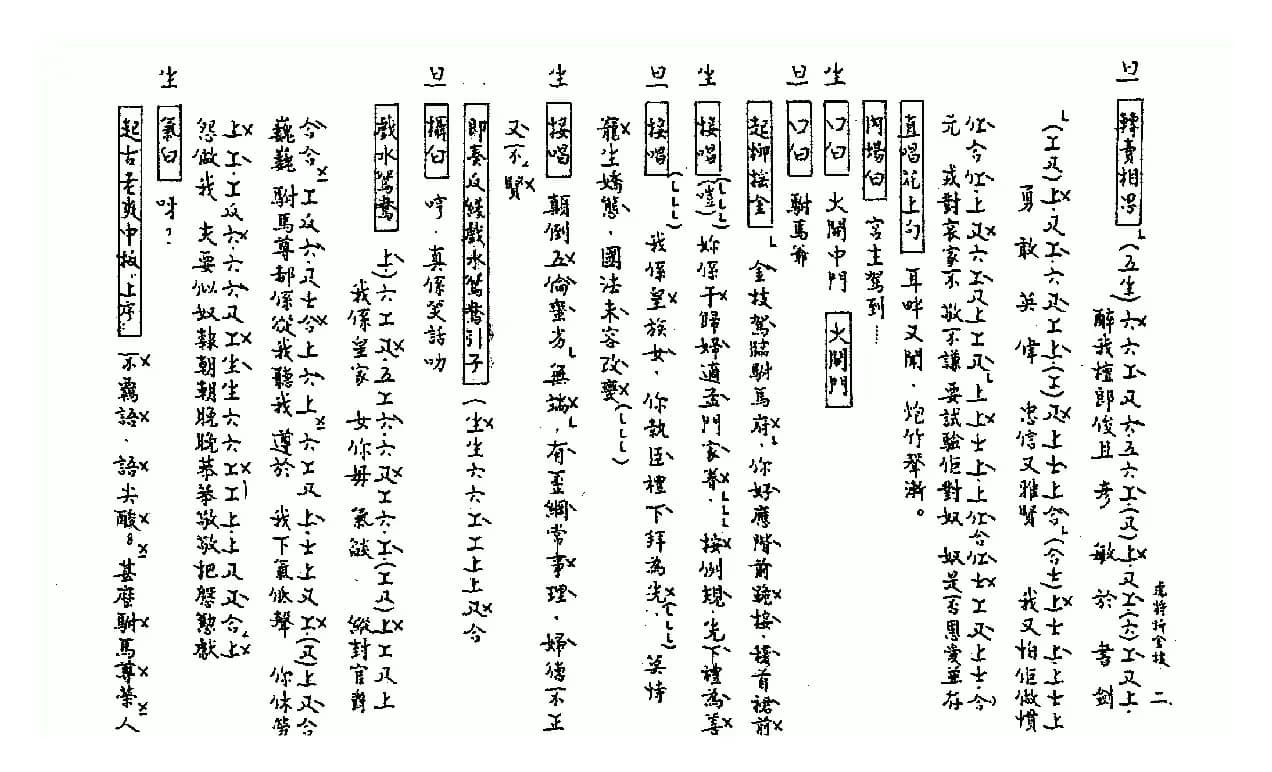 虎將折金枝 二
旦 轉賣相思 (五生)六六工尺六.五六.工.(尺)上.尺工.(六)工.尺上.
醉我檀郎俊且 考 敏 於 書 劍
(工尺)上.尺工六尺工上(工)尺上士上合(合士)上士上上士上
勇 敢 英 偉 忠信又雅賢 我又怕佢做慣
仩合仩上尺六工尺上工尺上上士上上仩合仩士工尺上士.合
元 或對哀家不敬不謙要試驗佢對奴 奴是否恩愛並存
直唱花上句 耳畔又聞.炮竹聲漸。
內場白 宮主駕到……
生 口白 大開中門 大開門
旦 口白 駙馬爺
起柳搖金 金枝駕臨駙馬府.你好應階前跪接.接首裙前
生 接唱 (嘻)妳係于歸婦適孟門家眷.按例規.先下禮為善
旦 接唱 我係皇族女.你執臣禮下拜為先.莫恃
寵生嬌態.國法未容改變
生 接唱 顛倒五倫齊劣.無端.有歪綱常事理.婦德不正
又不賢
即奏反線戲水鴛鴦引子 (生生六六.工.工工上上尺合
旦 攝白 哼.真係笑話叻
戲水鴛鴦 上.六工尺.五工六.六尺工六.工(工尺)上工尺上
我係皇家 女你毋 氣燄 縱封官爵
合合 工反六.尺士合上六上 六工尺 上.士上尺工.(尺)上尺合
巍巍 駙馬尊都係從我聽我 遵於 我下氣低聲 你休勞
上.工.工反六六尺工生生六六工工上.上尺尺合上
怨做我 夫要似奴隸朝朝晚晚恭恭敬敬把慇懃獻
生 氣白 呀?
起古老爽中板.上序: 不窩語.語尖酸。甚麼駙馬尊榮人